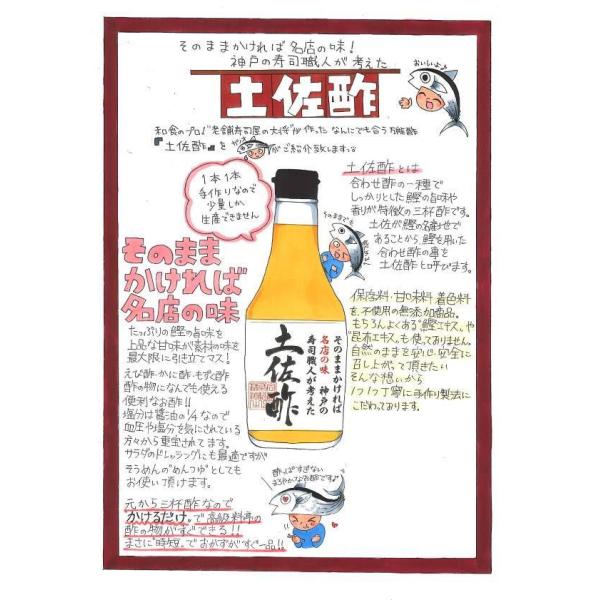 そのままかければ名店の味!
神戸の寿司職人が考えた
土佐酢
おいしいよ♪
和食のプロ!"老舗寿司屋の大将"が作ったなんにでも合う万能酢
『土佐酢』を
がご紹介致します。
1本1本
手作りなので
少量しか
生産できません
土佐酢とは
合わせ酢の一種で
しっかりとした鰹の旨味や
香りが特徴の三杯酢です。
土佐が鰹の名産地で
あることから、鰹を用いた
合わせ酢の事を
土佐酢と呼びます。
そのまま
かければ
名店の味
たっぷりの鰹の旨味を
上品な甘味が素材の味を
最大限に引立てマス!
えび酢・かに酢・もずく酢
酢の物になんでも使える
便利なお酢!!
塩分は醤油の1/4なので
血圧や塩分を気にされている
方々から重宝されてます。
サラダのドレッシングにも最適ですが
そうめんの"めんつゆ"としても
お使い頂けます。
元から三杯酢なので
"かけるだけ"で高級料亭の
酢の物がすぐできる!!
まさに"時短"でおかずがすぐ一品!!
そのままかければ
名店の味 神戸の
寿司職人が考えた
土佐酢
保存料・甘味料・着色料
を不使用の無添加商品。
もちろんよくある"鰹エキス"や
"昆布エキス"も使ってありません。
自然のままを安心・安全に
召し上がって頂きたい
そんな想いから
1つ1つ丁寧に手作り製法に
こだわっております。
酸っぱすぎない
まろやかなお酢です♪